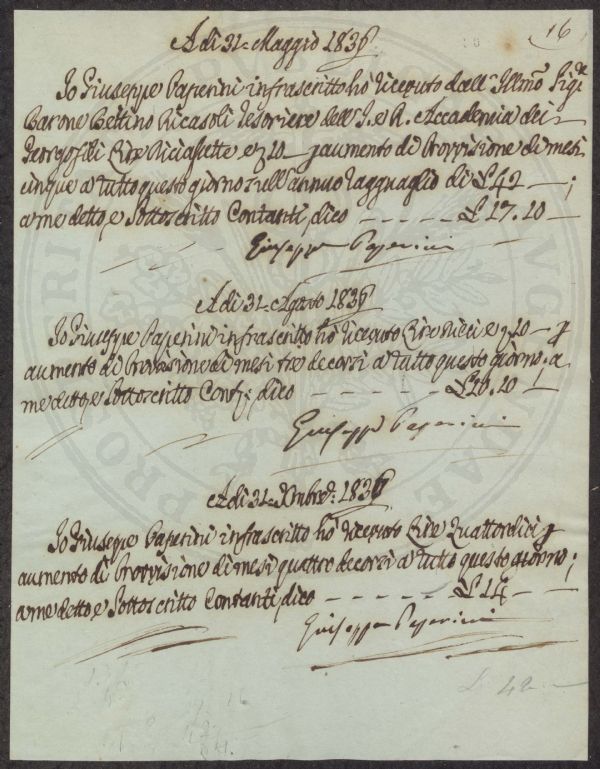 16
A di 31 Maggio 1836
Io Giuseppe Paperini infrascritto hò ricevuto dall' Illmo Sigre
Barone Bettino Ricasoli Tesoriere dell' I. e R. Accademia dei
Georgofili Lire Diciassette e 10 — p aumento di Provvisione di mesi
cinque a tutto questo giorno nell' annuo ragguaglio di £ 42 — ;
a me detto e Sottoscritto Contanti, dico — — — — £ 17. 10 —
Giuseppe Paperini
A di 31 Agosto 1836
Io Giuseppe Paperini infrascritto hò ricevuto Lire Dieci e 10 — p
aumento di Provvisione di mesi tre decorsi a tutto questo giorno; a
me detto e Sottoscritto Conti; dico — — — — £ 10. 10 —
Giuseppe Paperini
A di 31 Xmbre: 1836
Io Giuseppe Paperini infrascritto hò ricevuto Lire Quattordici p
aumento di Provvisione di mesi quattro decorsi a tutto questo giorno;
a me detto e Sottoscritto Contanti, dico — — — — £ 14 —
Giuseppe Paperini
£ 42 —
16